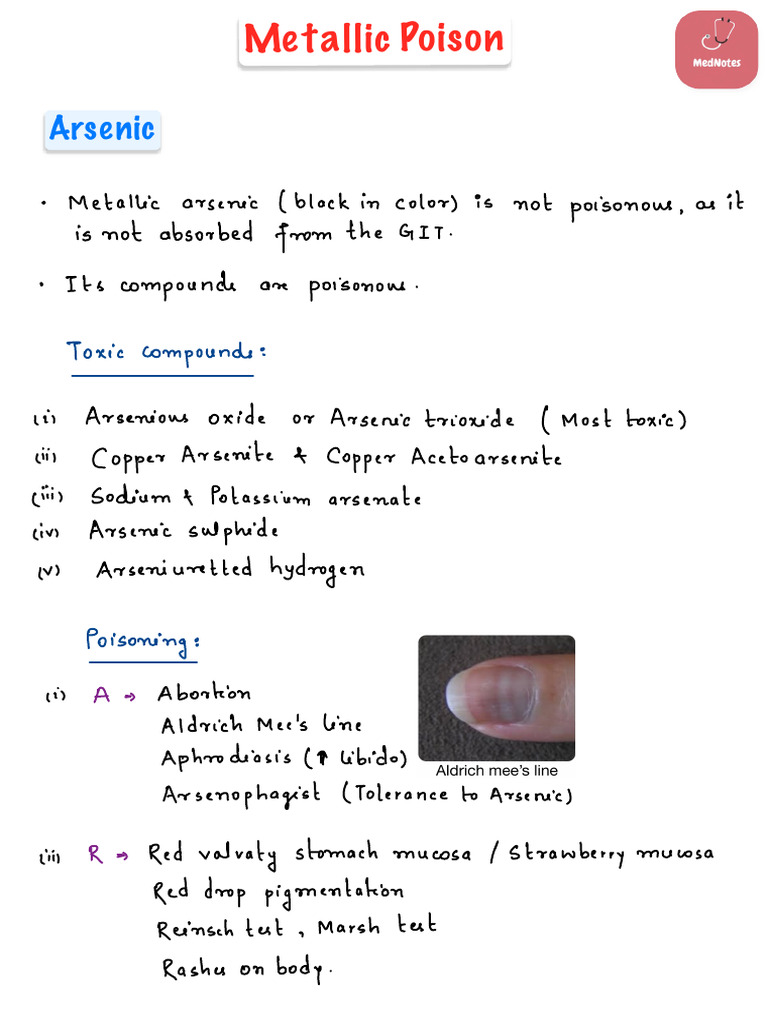 Metallic Poison
MedNotes
Arsenic
• Metallic arsenic (black in color) is not poisonous, as it
is not absorbed from the GIT.
• Its compounds are poisonous.
Toxic compounds:
(i) Arsenious oxide or Arsenic trioxide (Most toxic)
(ii) Copper Arsenite & Copper Acetoarsenite
(iii) Sodium & Potassium arsenate
(iv) Arsenic sulphide
(v) Arseniuretted hydrogen
Poisoning:
(i) A → Abortion
Aldrich Mee's line
Aphrodiasis (↑ libido)
Aldrich mee's line
Arsenophagist (Tolerance to Arsenic)
(ii) R → Red valvaty stomach mucosa / Strawberry mucosa
Red drop pigmentation
Reinsch test, Marsh test
Rashes on body.